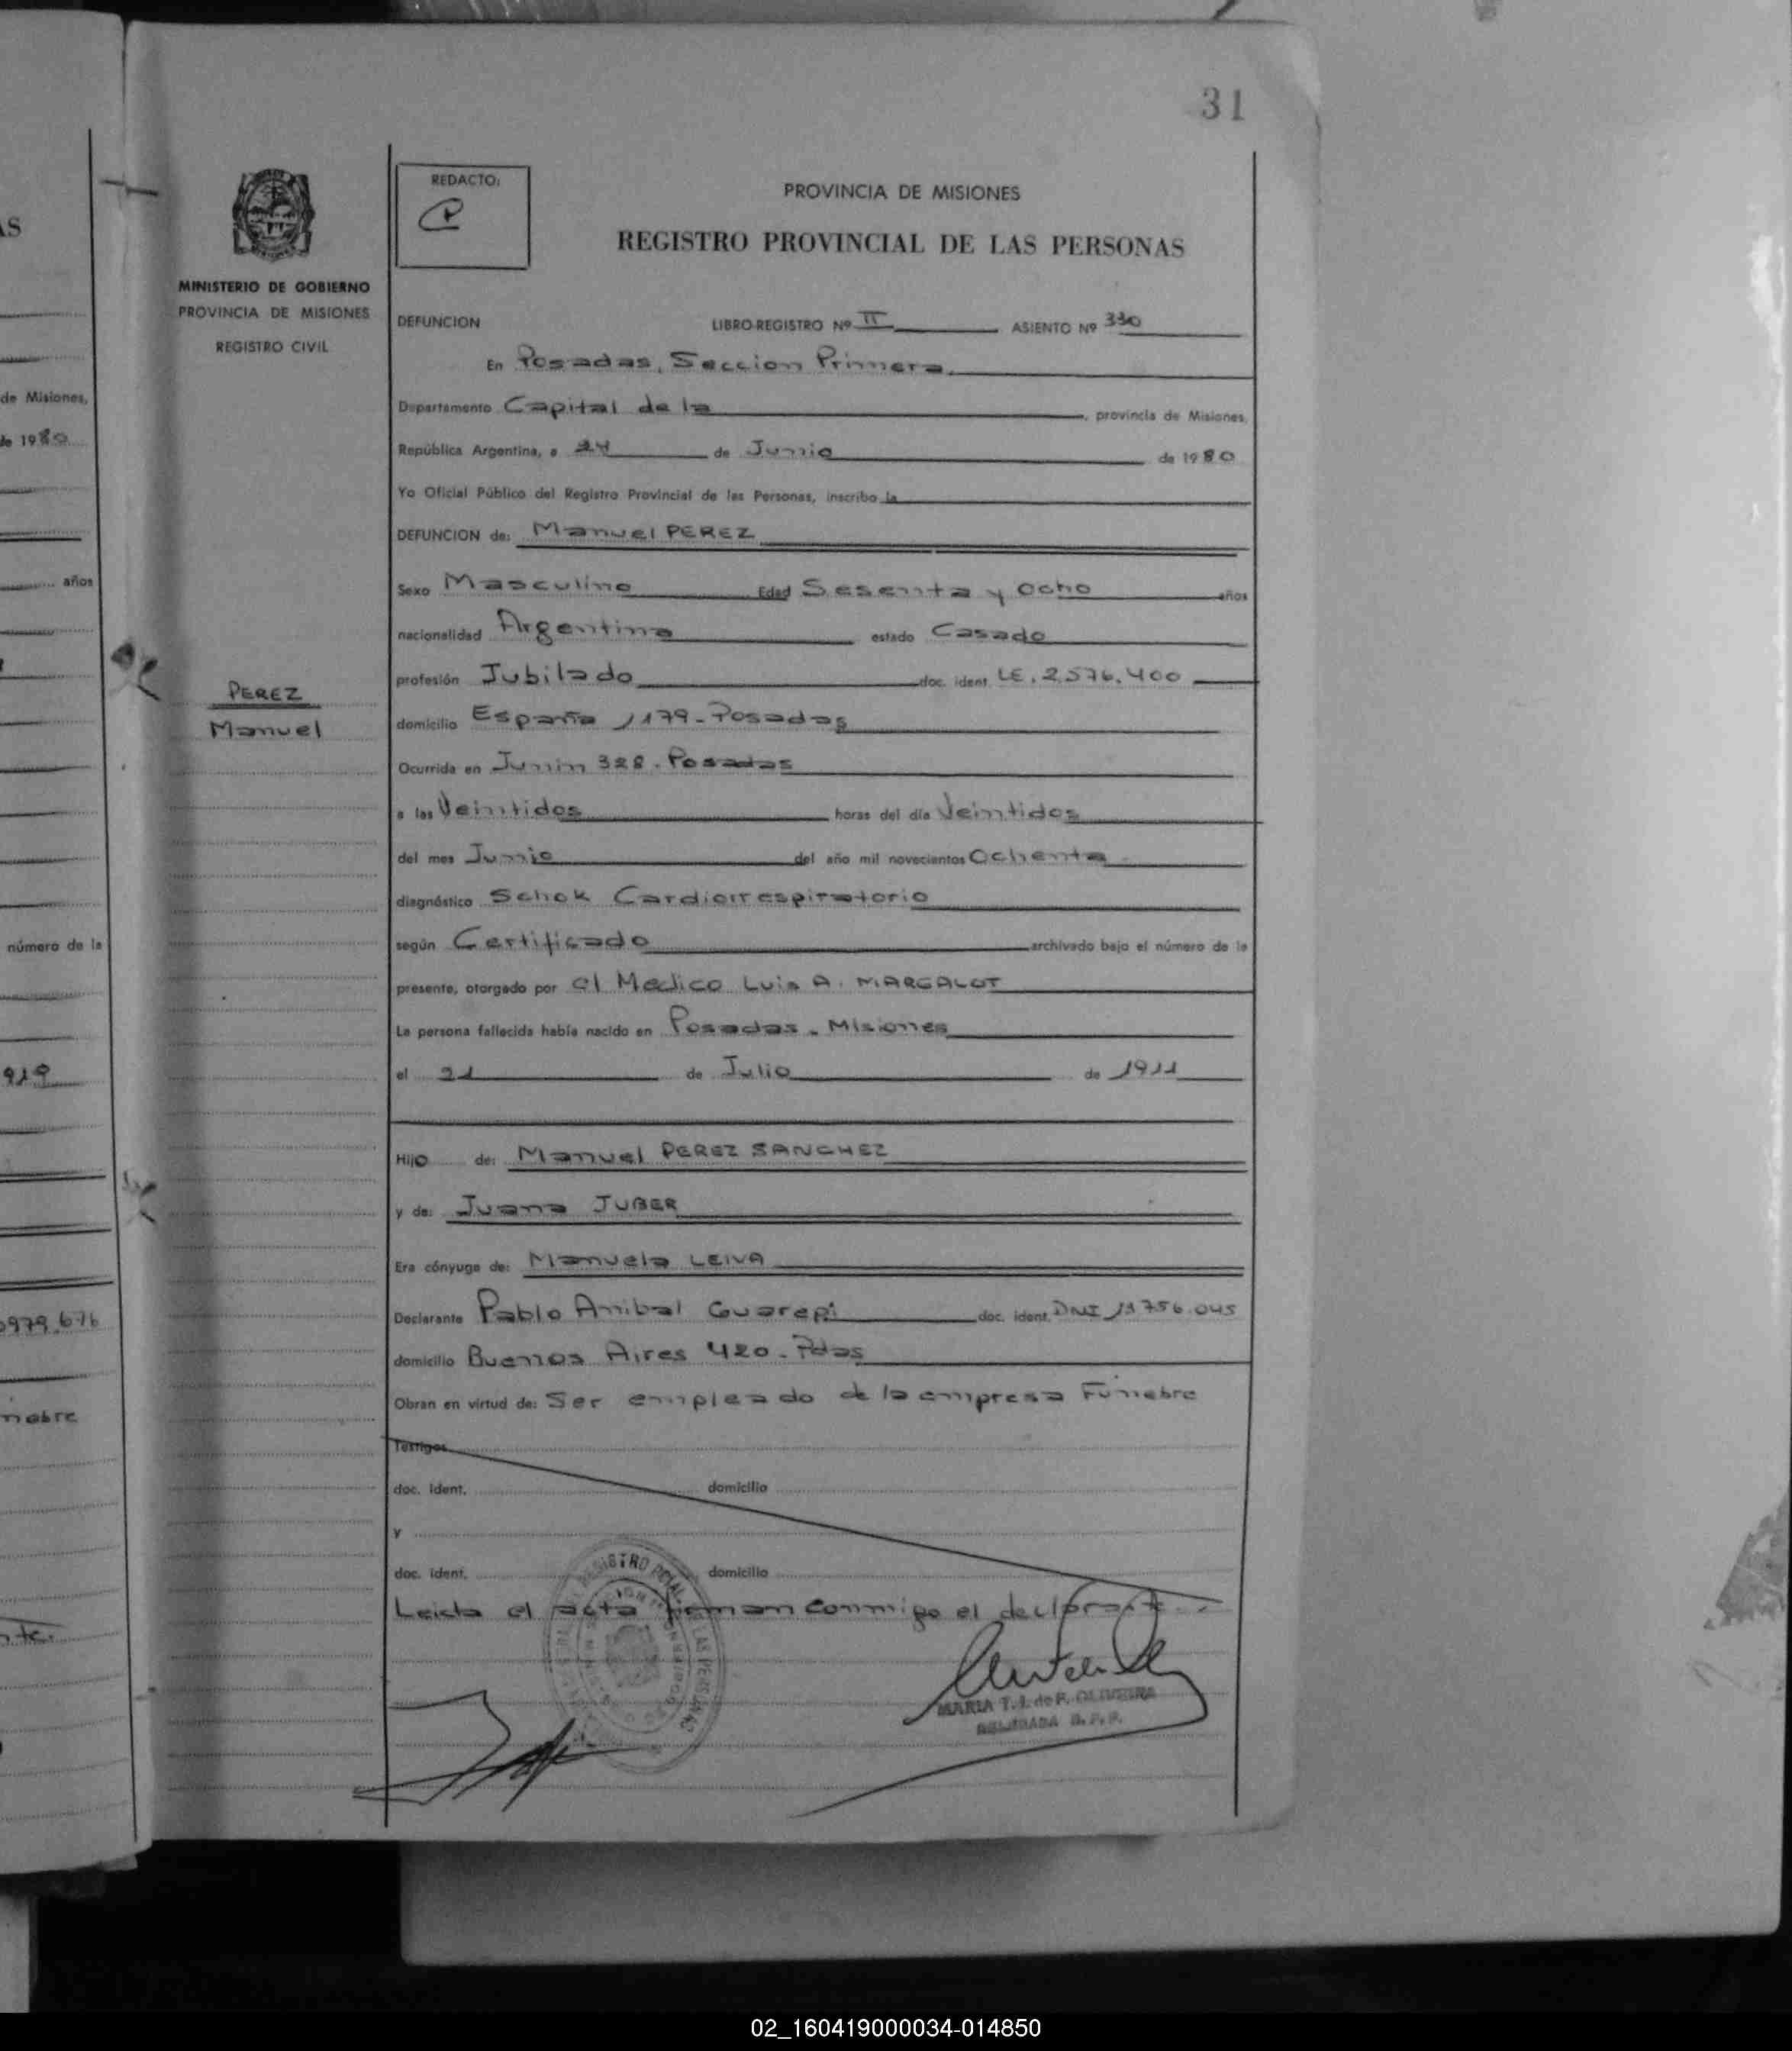 31
AS
de Misiones,
de 1980
años
919
número de la
0979.676
nebre
nte.
MINISTERIO DE GOBIERNO
PROVINCIA DE MISIONES
REGISTRO CIVIL
PEREZ
Manuel
REDACTO:
PROVINCIA DE MISIONES
REGISTRO PROVINCIAL DE LAS PERSONAS
DEFUNCION LIBRO-REGISTRO Nº II ASIENTO Nº 330
En Posadas, Seccion Primera.
Departamento Capital de la , provincia de Misiones,
República Argentina, a 24 de Junio de 1980
Yo Oficial Público del Registro Provincial de las Personas, inscribo la
DEFUNCION de: Manuel PEREZ
Sexo Masculino Edad Sesenta y Ocho años
nacionalidad Argentina estado Casado
profesión Jubilado doc. ident. LE. 2.576.400
domicilio España 1179 - Posadas
Ocurrida en Junin 328. Posadas
a las Veintidos horas del día Veintidos
del mes Junio del año mil novecientos Ochenta
diagnóstico Schok Cardiorrespiratorio
según Certificado archivado bajo el número de la
presente, otorgado por el Medico Luis A. MARGALOT
La persona fallecida había nacido en Posadas - Misiones
el 21 de Julio de 1911
Hijo de: Manuel PEREZ SANCHEZ
y de: Juana JUBER
Era cónyuge de: Manuela LEIVA
Declarante Pablo Anibal Guarepi doc. ident. DNI 13756.045
domicilio Buenos Aires 420 - Pdas
Obran en virtud de: Ser empleado de la empresa Funebre
Testigos
doc. ident. domicilio
y
doc. ident. domicilio
Leida el acta firman conmigo el declarante.
MARIA T. I. de F. OLIVEIRA
02_160419000034-014850